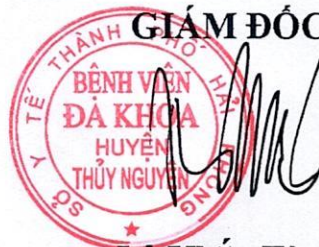 GIÁM ĐỐC
SỞ Y TẾ THÀNH PHỐ HẢI PHÒNG
BỆNH VIỆN
ĐA KHOA
HUYỆN
THỦY NGUYÊN